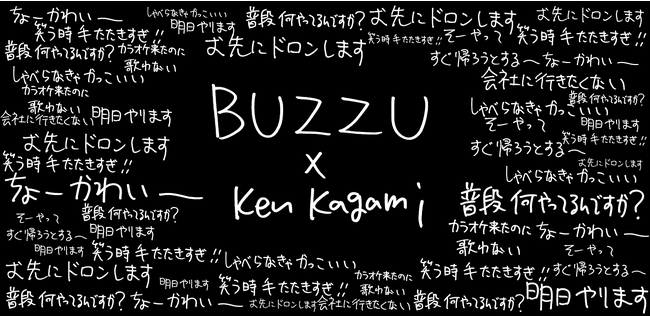 ちょーかわいー
しゃべらなきゃかっこいい
明日やります
普段何やってるんですか?
お先にドロンします
お先にドロンします
笑う時手たたきすぎ!!
お先にドロンします
笑う時手たたきすぎ!!
そーやって
笑う時手たたきすぎ!!
普段何やってるんですか?
カラオケ来たのに
歌わない
すぐ帰ろうとする〜
ちょーかわいー
しゃべらなきゃかっこいい
カラオケ来たのに
歌わない
会社に行きたくない
明日やります
会社に行きたくない
普段何やってるんですか?
しゃべらなきゃかっこいい
そーやって
明日やります
BUZZU
x
Ken Kagami
お先にドロンします
笑う時手たたきすぎ!!
すぐ帰ろうとする〜
笑う時手たたきすぎ!!
お先にドロンします
しゃべらなきゃかっこいい
ちょーかわいー
普段何やってるんですか?
そーやって
普段何やってるんですか?
すぐ帰ろうとする〜
明日やります
カラオケ来たのに
歌わない
ちょーかわいー
そーやって
明日やります
笑う時手たたきすぎ!!
しゃべらなきゃかっこいい
お先にドロンします
明日やります
カラオケ来たのに
歌わない
笑う時手たたきすぎ!!
すぐ帰ろうとする〜
普段何やってるんですか?
ちょーかわいー
お先にドロンします
会社に行きたくない
普段何やってるんですか?
笑う時手たたきすぎ!!
明日やります